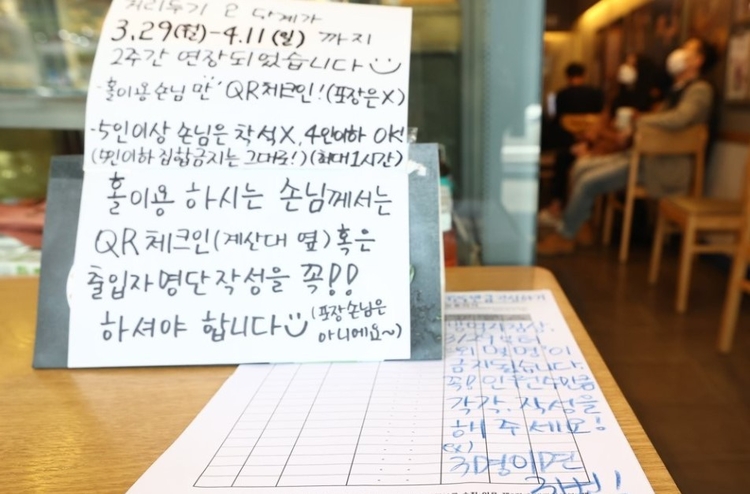 거리두기 2단계가
3.29(월)-4.11(일) 까지
2주간 연장되었습니다
-홀이용손님 만 QR체크인!(포장은X)
-5인이상 손님은 착석X, 4인이하 OK!
(5인이하 집합금지는 그대로!)(최대1시간)
홀이용 하시는 손님께서는
QR체크인(계산대 옆)혹은
출입자명단작성을 꼭!!
하셔야 합니다 (포장손님은
아니에요~)
3/29부터
외 명이
금지됩니다
꼭! 인원수만큼
각각. 작성을
해주세요!
(ex)
3명이면